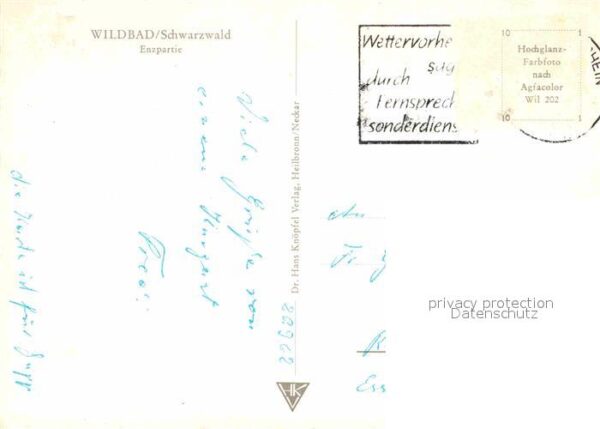 WILDBAD/Schwarzwald
Enzpartie
Wettervorhe
sag
durch
Fernsprech
sonderdiens
HEIN
10 1
Hochglanz-
Farbfoto
nach
Agfacolor
Wil 202
10 1
Viele Grüße von
einem
die Karte ist für
Dr. Hans Knöpfel Verlag, Heilbronn/Neckar
HK
An
Fr
K
Ess
privacy protection
Datenschutz